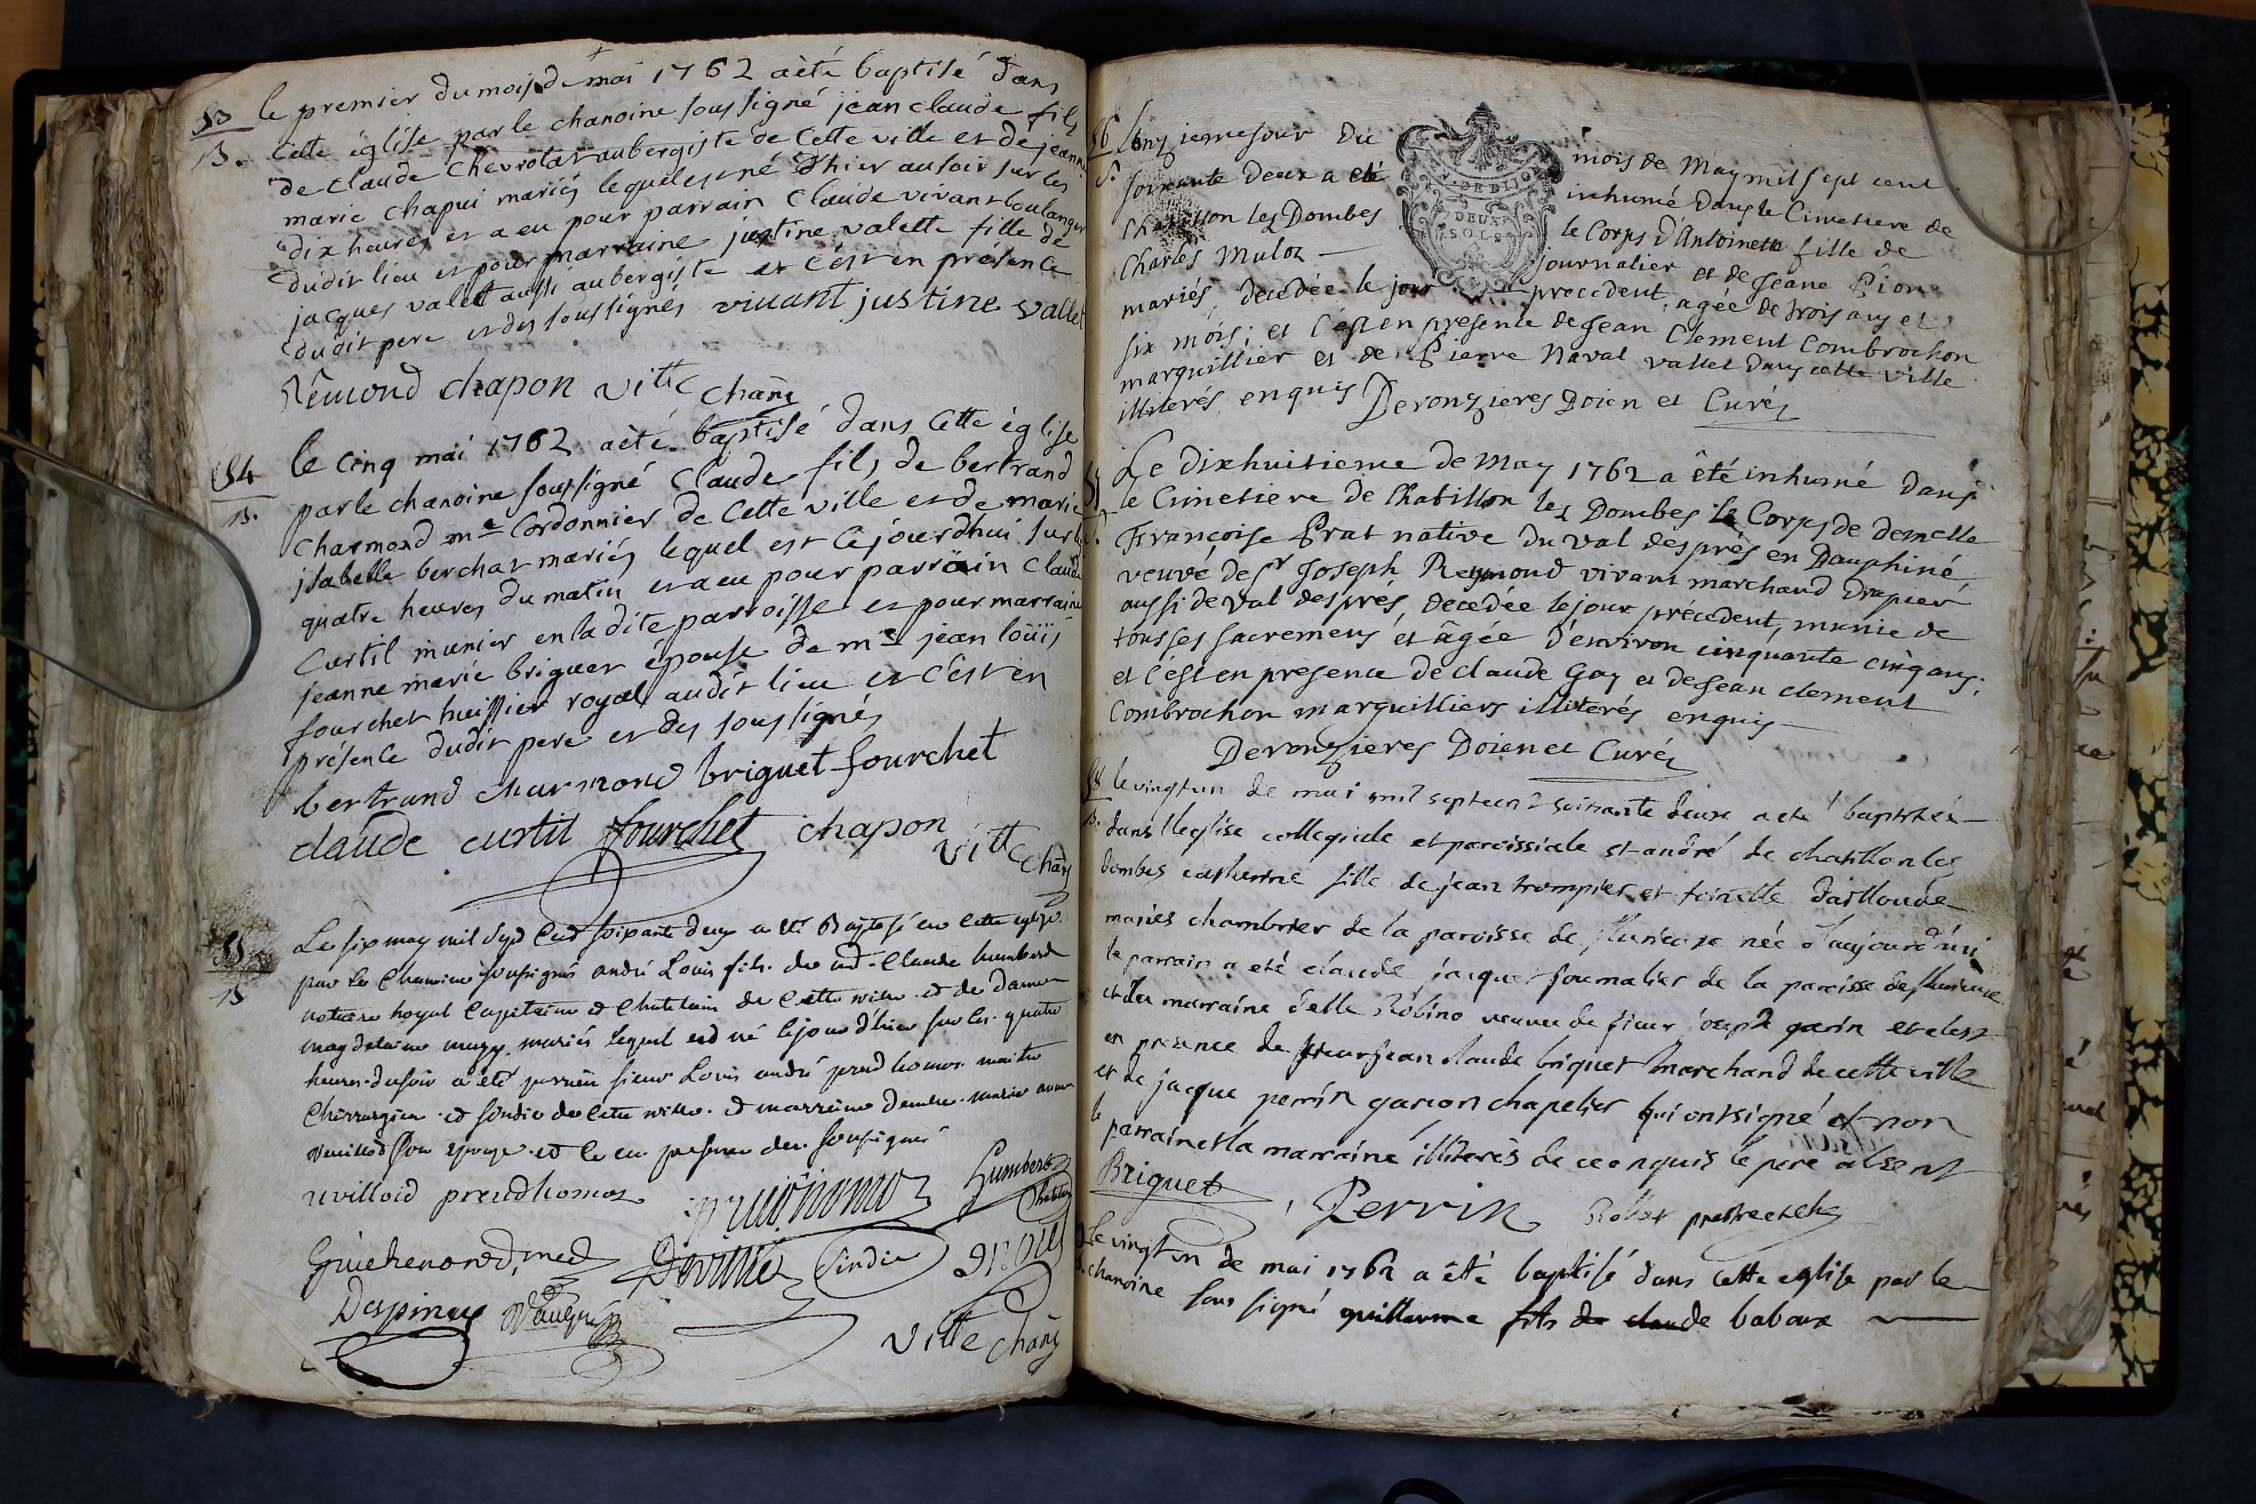 53 le premier du mois de mai 1762 a èté baptisé dans
B. cette église par le chanoine soussigné jean claude fils
de claude Chevrolat aubergiste de cette ville et de jeanne
marie chapui mariés lequel est né d'hier au soir sur les
dix heures et a eu pour parrain claude vivant boulanger
dudit lieu et pour marraine justine valette fille de
jacques valett aussi aubergiste et c'ést en présence
dudit pere et des soussignés vivant justine vallet
Rêmond chapon vitte chañe
54 le cinq mai 1762 a èté baptisé dans cette église
B. par le chanoine soussigné claude fils de bertrand
charmond me cordonnier de cette ville et de marie
isabelle berchat mariés lequel est né cejourdhui sur les
quatre heures du matin et a eu pour parrain claude
curtil munier en la dite parroisse et pour marraine
jeanne marie briguet épouse de me jean loüis
fourchet huissier royal audit lieu et c'est en
présence dudit pere et des soussignés
bertrand charmond briguet fourchet
claude curtil fourchet chapon
vitte chañe
55 Le six may mil sept cent soixante deux a été Baptisé en cette eglise
B par le Chanoine soussigné andré Louis fils de me Claude humbert
notaire royal Capitaine et Chatelain de cette ville et de Dame
magdelaine mariés lequel est né le jour d'hier sur les quatre
heures du soir a été parrein sieur Louis andré preud'homos maitre
Chirurgien et sindic de cette ville et marreine demlle marie anne
son epouse et ce en presence des soussignés
preudhomos Humbert
Chatelain
Guichenon med Deville sindic
Despiney
vitte chañe
56 L'onzieme jour du mois de May mil sept cent
S. soixante deux a eté inhumé dans le Cimetiere de
Chatillon les Dombes le Corps d'Antoinette fille de
Charles Muloz journalier et de Jeane Pion
mariés, decedée le jour precedent, agée de trois ans et
six mois; et c'est en presence de Jean Clement Combrochon
marguillier et de Pierre Naval vallet dans cette ville
illiterés enquis Deronzieres Doien et Curé
N. DE DIJON
DEUX
SOLS
57 Le Dixhuitieme de May 1762 a été inhumé dans
S. le Cimetiere de Chatillon les Dombes le Corps de demelle
Françoise Prat native du val després en Dauphiné,
veuve de Sr Joseph Reymond vivant marchand Drapier
aussi de val després, decedée le jour précédent, munie de
tous ses sacremens et âgée d'environ cinquante cinq ans,
et c'est en presence de Claude Gay et de Jean clement
Combrochon marguilliers illiterés enquis
Deronzieres Doien et Curé
58 le vingt un de mai mil sept cent soixante deux a eté baptisée
B. dans l'eglise collegiale et paroissiale st andré de chatillon les
dombes catherine fille de jean trompier et
mariés chambrier de la paroisse de née d'aujourd'ui
le parrain a eté claude jaque journalier de la paroisse de
et la marraine delle Robino veuve de sieur joseph garin et c'est
en presence de sieur jean claude briquet marchand de cette ville
et de jacque perrin garcon chapelier qui ont signé et non
le parrain et la marraine illiterés de ce enquis le pere absent
Briguet Perrin prestre et
Le vingt un de mai 1762 a été baptisé dans cette eglise par le
chanoine sous signé guillaume fils de claude babaux